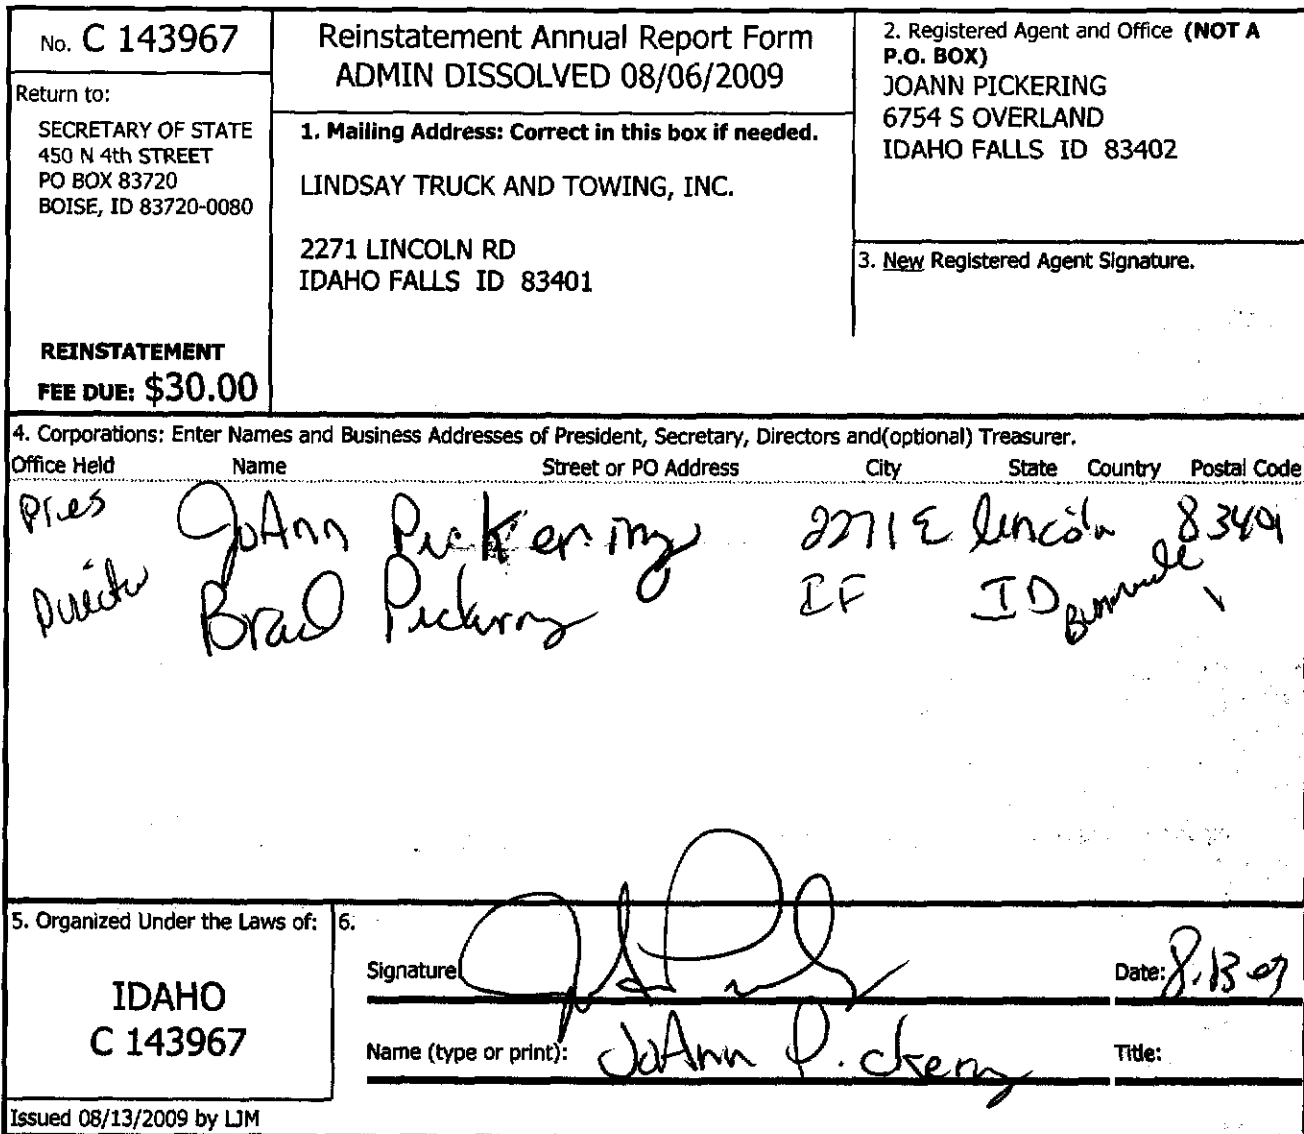 No. C 143967
Return to:
SECRETARY OF STATE
450 N 4th STREET
PO BOX 83720
BOISE, ID 83720-0080
REINSTATEMENT
FEE DUE: $30.00
Reinstatement Annual Report Form
ADMIN DISSOLVED 08/06/2009
1. Mailing Address: Correct in this box if needed.
LINDSAY TRUCK AND TOWING, INC.
2271 LINCOLN RD
IDAHO FALLS ID 83401
2. Registered Agent and Office (NOT A
P.O. BOX)
JOANN PICKERING
6754 S OVERLAND
IDAHO FALLS ID 83402
3. New Registered Agent Signature.
4. Corporations: Enter Names and Business Addresses of President, Secretary, Directors and(optional) Treasurer.
Office Held Name Street or PO Address City State Country Postal Code
Pres JoAnn Pickering 2271 E Lincoln 83401
Director Brad Pickering IF ID Bonneville
5. Organized Under the Laws of:
IDAHO
C 143967
6.
Signature
Date: 8.13.09
Name (type or print): JoAnn Pickering
Title:
Issued 08/13/2009 by LJM